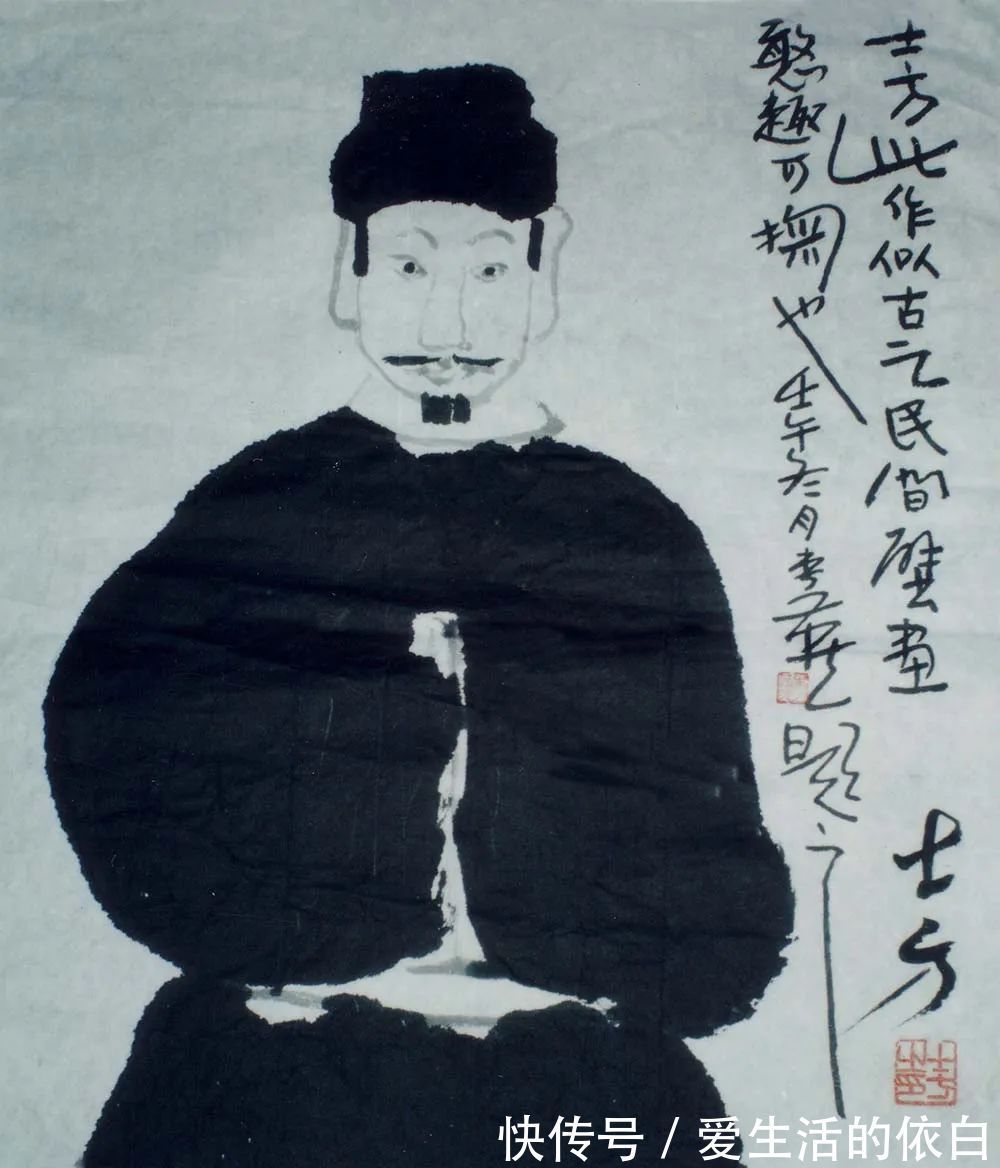 士方此作似古之民间壁画
憨趣可掬也 壬午冬月 题之
士方
快传号 / 爱生活的依白